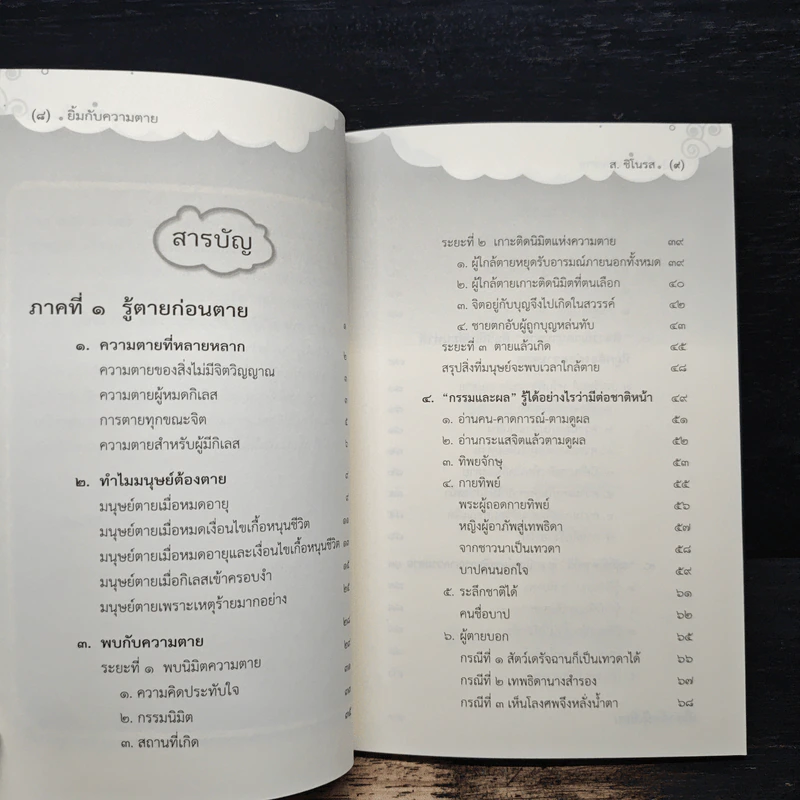 (๘) • ยิ้มกับความตาย
สารบัญ
ภาคที่ ๑ รู้ตายก่อนตาย
๑. ความตายที่หลายหลาก
ความตายของสิ่งไม่มีจิตวิญญาณ
ความตายผู้หมดกิเลส
การตายทุกขณะจิต
ความตายสำหรับผู้มีกิเลส
๒. ทำไมมนุษย์ต้องตาย
มนุษย์ตายเมื่อหมดอายุ
มนุษย์ตายเมื่อหมดเงื่อนไขเกื้อหนุนชีวิต
มนุษย์ตายเมื่อหมดอายุและเงื่อนไขเกื้อหนุนชีวิต
มนุษย์ตายเมื่อกิเลสเข้าครอบงำ
มนุษย์ตายเพราะเหตุร้ายมากอย่าง
๓. พบกับความตาย
ระยะที่ ๑ พบนิมิตความตาย
๑. ความคิดประทับใจ
๒. กรรมนิมิต
๓. สถานที่เกิด
ส. ชิโนรส • (๙)
ระยะที่ ๒ เกาะติดนิมิตแห่งความตาย ๓๙
๑. ผู้ใกล้ตายหยุดรับอารมณ์ภายนอกทั้งหมด ๓๙
๒. ผู้ใกล้ตายเกาะติดนิมิตที่ตนเลือก ๔๐
๓. จิตอยู่กับบุญจึงไปเกิดในสวรรค์ ๔๒
๔. ชายตกอับผู้ถูกบุญหล่นทับ ๔๓
ระยะที่ ๓ ตายแล้วเกิด ๔๕
สรุปสิ่งที่มนุษย์จะพบเวลาใกล้ตาย ๔๘
๔. “กรรมและผล” รู้ได้อย่างไรว่ามีต่อชาติหน้า ๔๙
๑. อ่านคน-คาดการณ์-ตามดูผล ๕๑
๒. อ่านกระแสจิตแล้วตามดูผล ๕๒
๓. ทิพยจักษุ ๕๓
๔. กายทิพย์ ๕๕
พระผู้ถอดกายทิพย์ ๕๖
หญิงผู้อาภัพสู่เทพธิดา ๕๗
จากชาวนาเป็นเทวดา ๕๘
บาปคนนอกใจ ๕๙
๕. ระลึกชาติได้ ๖๑
คนชื่อบาป ๖๒
๖. ผู้ตายบอก ๖๕
กรณีที่ ๑ สัตว์เดรัจฉานก็เป็นเทวดาได้ ๖๖
กรณีที่ ๒ เทพธิดานางสำรอง ๖๗
กรณีที่ ๓ เห็นโลงศพจึงหลั่งน้ำตา ๖๘